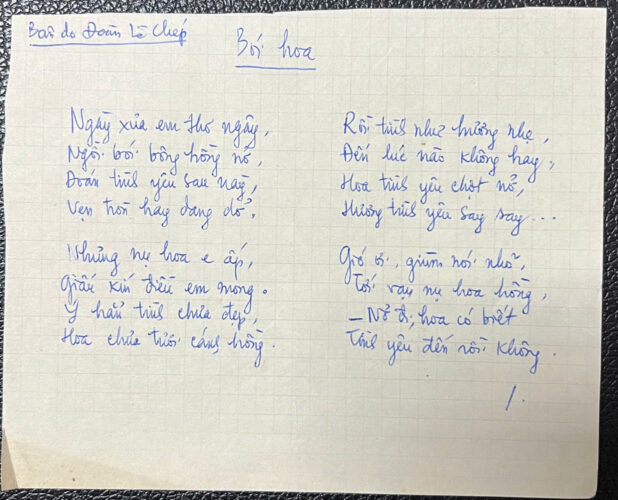 Bài do Đoàn Lê Chép
Bói hoa
Ngày xưa em thơ ngây,
Ngồi bói bông hồng nở,
Đoán tình yêu sau này,
Vẹn tròn hay dang dở.
Nhưng nụ hoa e ấp,
Giấu kín điều em mong.
Ý hẳn tình chưa đẹp,
Hoa chưa tươi cánh hồng.
Rồi tình như hương nhẹ,
Đến lúc nào không hay,
Hoa tình yêu chợt nở,
Hương tình yêu say say...
Gió ơi, giùm nói nhỏ,
Tới vạn nụ hoa hồng,
– Nở đi, hoa có biết
Tình yêu đến rồi không.
/.